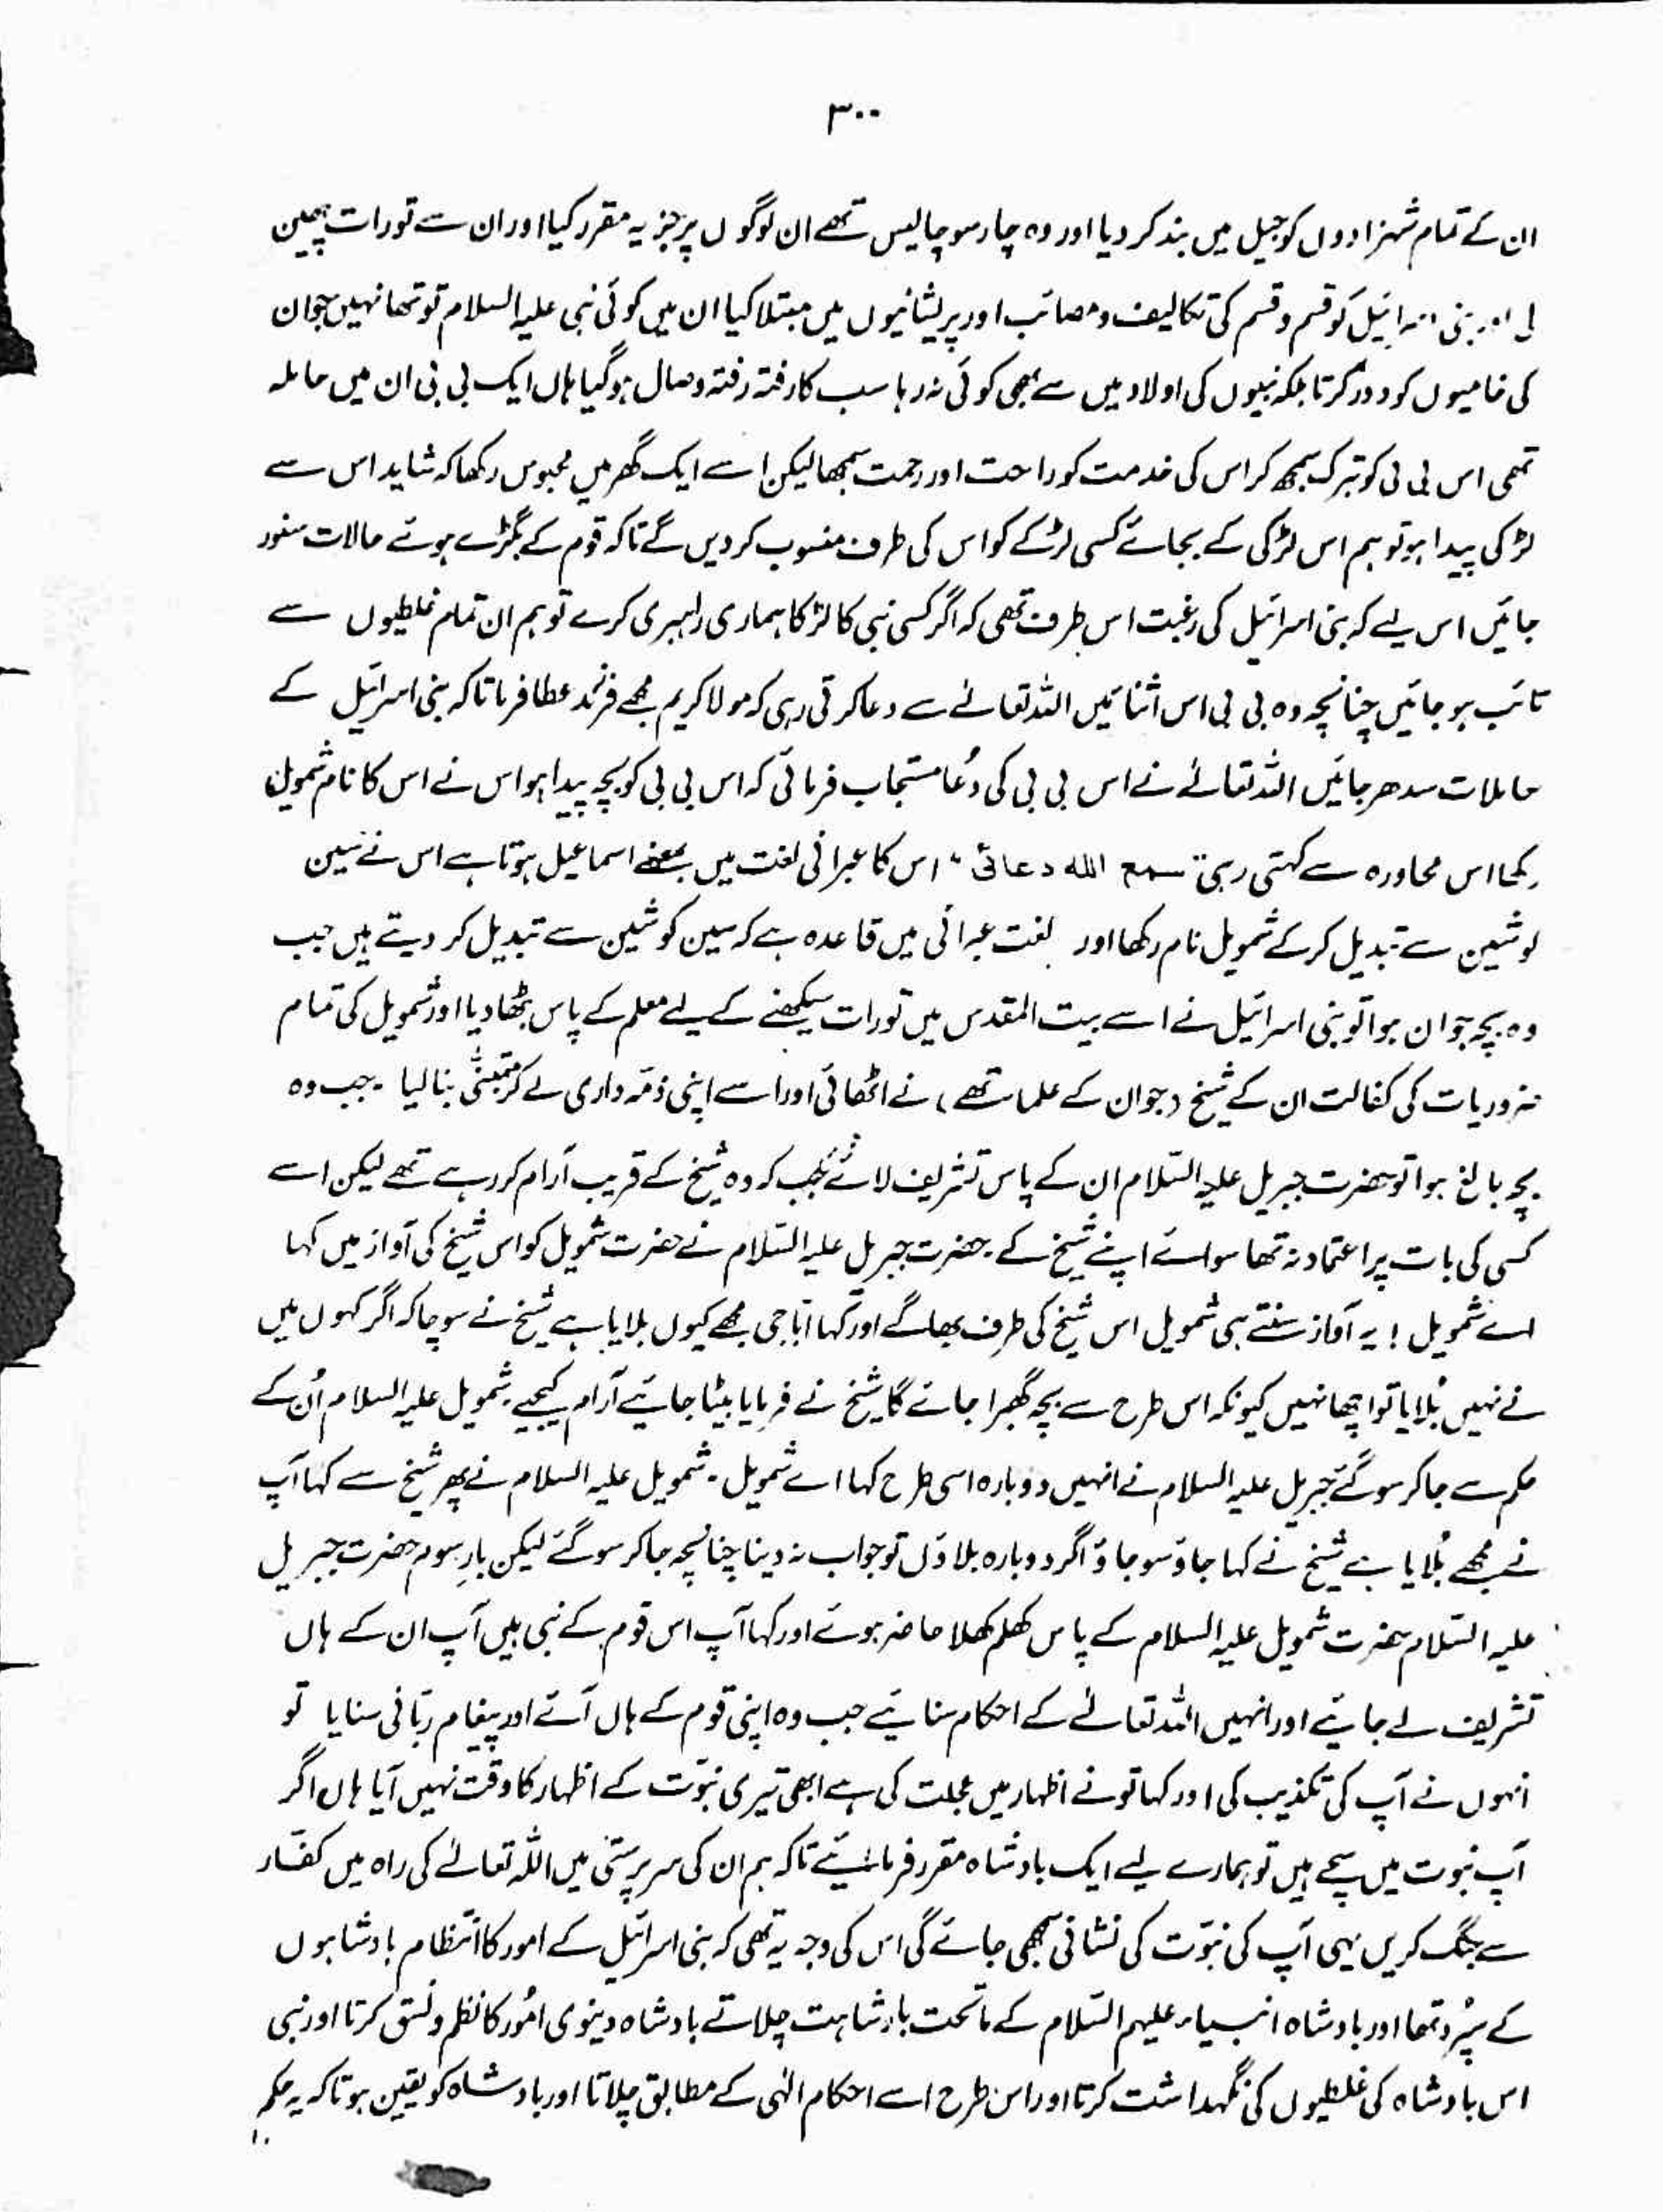 ۳۰۰
ان کے تمام شہزادوں کو جیل میں بند کر دیا اور وہ چار سو چالیس تھے ان لوگوں پر جزیہ مقرر کیا اور ان سے تورات چھین
لی اور بنی اسرائیل کو قسم و قسم کی تکالیف و مصائب اور پریشانیوں میں مبتلا کیا ان میں کوئی نبی علیہ السلام تو تھا نہیں جو ان
کی خامیوں کو دور کرتا بلکہ نبیوں کی اولاد میں سے بھی کوئی نہ رہا سب کا رفتہ رفتہ وصال ہو گیا ہاں ایک بی بی ان میں حاملہ
تھی اس بی بی کو تبرک سمجھ کر اس کی خدمت کو راحت اور رحمت سمجھا لیکن اسے ایک گھر میں محبوس رکھا کہ شاید اس سے
لڑکی پیدا ہو تو ہم اس لڑکی کے بجائے کسی لڑکے کو اس کی طرف منسوب کر دیں گے تاکہ قوم کے بگڑے ہوئے حالات سنور
جائیں اس لیے کہ بنی اسرائیل کی رغبت اس طرف تھی کہ اگر کسی نبی کا لڑکا ہماری راہبری کرے تو ہم ان تمام غلطیوں سے
تائب ہو جائیں چنانچہ وہ بی بی اس اثنا میں اللہ تعالےٰ سے دعا کرتی رہی کہ مولا کریم مجھے فرزند عطا فرما تاکہ بنی اسرائیل کے
حالات سدھر جائیں اللہ تعالےٰ نے اس بی بی کی دُعا مستجاب فرمائی کہ اس بی بی کو بچہ پیدا ہوا اس نے اس کا نام شمویل
رکھا اس محاورہ سے کہتی رہی "سمع اللہ دعائی" اس کا عبرانی لغت میں بمعنے اسماعیل ہوتا ہے اس نے سین
کو شین سے تبدیل کر کے شمویل نام رکھا اور لغت عبرانی میں قاعدہ ہے کہ سین کو شین سے تبدیل کر دیتے ہیں جب
وہ بچہ جوان ہوا تو بنی اسرائیل نے اسے بیت المقدس میں تورات سیکھنے کے لیے معلم کے پاس بٹھا دیا اور شمویل کی تمام
ضروریات کی کفالت ان کے شیخ (جو ان کے علما تھے) نے اٹھائی اور اسے اپنی ذمّہ داری لے کر متبنّٰی بنا لیا ۔ جب وہ
بچہ بالغ ہوا تو حضرت جبریل علیہ السّلام ان کے پاس تشریف لائے جب کہ وہ شیخ کے قریب آرام کر رہے تھے لیکن اسے
کسی کی بات پر اعتماد نہ تھا سوائے اپنے شیخ کے ۔ حضرت جبریل علیہ السّلام نے حضرت شمویل کو اس شیخ کی آواز میں کہا
اے شمویل ! یہ آواز سنتے ہی شمویل اس شیخ کی طرف بھاگے اور کہا ابّا جی مجھے کیوں بلایا ہے شیخ نے سوچا کہ اگر کہوں میں
نے نہیں بُلایا تو اچھا نہیں کیونکہ اس طرح سے بچہ گھبرا جائے گا شیخ نے فرمایا بیٹا جائیے آرام کیجیے ۔ شمویل علیہ السلام اُن کے
حکم سے جا کر سو گئے جبریل علیہ السلام نے انہیں دوبارہ اسی طرح کہا اے شمویل ۔ شمویل علیہ السلام نے پھر شیخ سے کہا آپ
نے مجھے بُلایا ہے شیخ نے کہا جاؤ سو جاؤ اگر دوبارہ بلاؤں تو جواب نہ دینا چنانچہ جا کر سو گئے لیکن بارِ سوم حضرت جبریل
علیہ السّلام حضرت شمویل علیہ السلام کے پاس کھلم کھلا حاضر ہوئے اور کہا آپ اس قوم کے نبی ہیں آپ ان کے ہاں
تشریف لے جائیے اور انہیں اللہ تعالےٰ کے احکام سنائیے جب وہ اپنی قوم کے ہاں آئے اور پیغام ربّانی سنایا تو
انہوں نے آپ کی تکذیب کی اور کہا تو نے اظہار میں عجلت کی ہے ابھی تیری نبوّت کے اظہار کا وقت نہیں آیا ہاں اگر
آپ نبوت میں سچے ہیں تو ہمارے لیے ایک بادشاہ مقرر فرمائیے تاکہ ہم ان کی سرپرستی میں اللہ تعالےٰ کی راہ میں کفّار
سے جنگ کریں یہی آپ کی نبوّت کی نشانی سمجھی جائے گی اس کی وجہ یہ تھی کہ بنی اسرائیل کے امور کا انتظام بادشاہوں
کے سُپرد تھا اور بادشاہ انبیاء علیہم السّلام کے ماتحت بادشاہت چلاتے بادشاہ دینوی امُور کا نظم و نسق کرتا اور نبی
اس بادشاہ کی غلطیوں کی نگہداشت کرتا اور اس طرح اسے احکام الٰہی کے مطابق چلاتا اور بادشاہ کو یقین ہوتا کہ یہ حکم